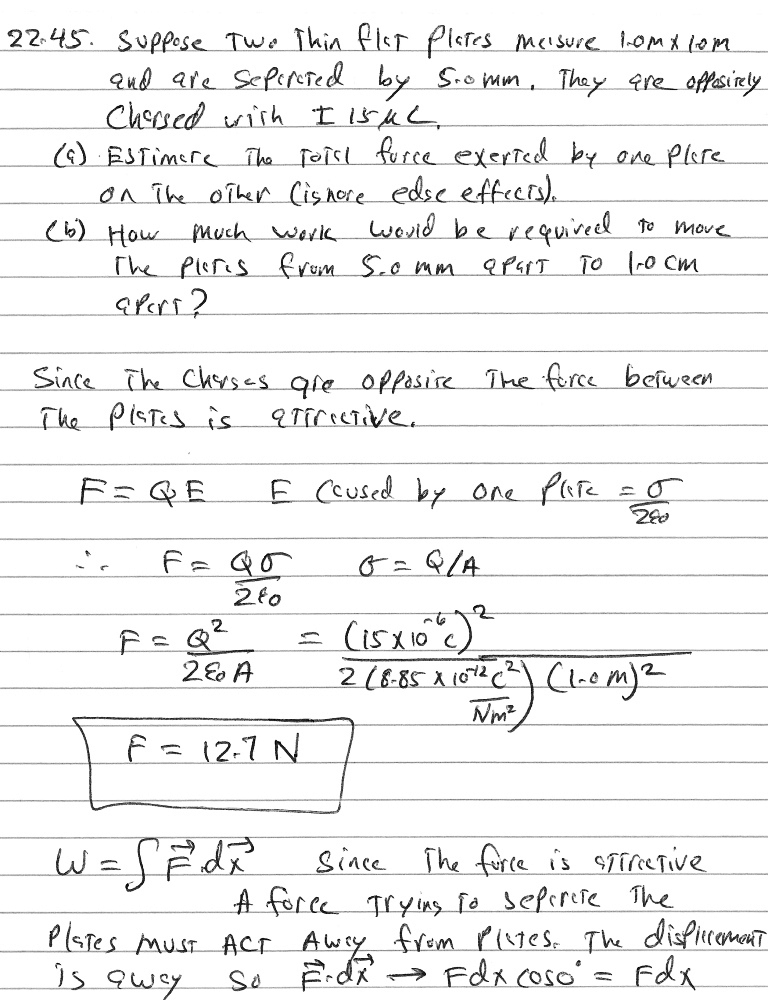 22.45. Suppose Two Thin flat plates measure 1.0m x 1.0m
and are separated by 5.0 mm. They are oppositely
Charged with ± 15 μC.
(a) Estimate The Total force exerted by one plate
on The other (ignore edge effects).
(b) How much work would be required to move
The plates from 5.0 mm apart To 1.0 cm
apart?
Since The Charges are opposite The force between
The plates is attractive.
F = QE E Caused by one plate = σ/2ε0
∴ F = Qσ/2ε0 σ = Q/A
F = Q²/2ε0A = (15 x 10⁻⁶ C)²/2(8.85 x 10⁻¹² C²/Nm²)(1.0 m)²
F = 12.7 N
W = ∫ F⃗·dx⃗ Since The force is attractive
A force Trying To separate The
Plates Must ACT Away from Plates. The displacement
is away So F⃗·dx⃗ → Fdx cos0° = Fdx